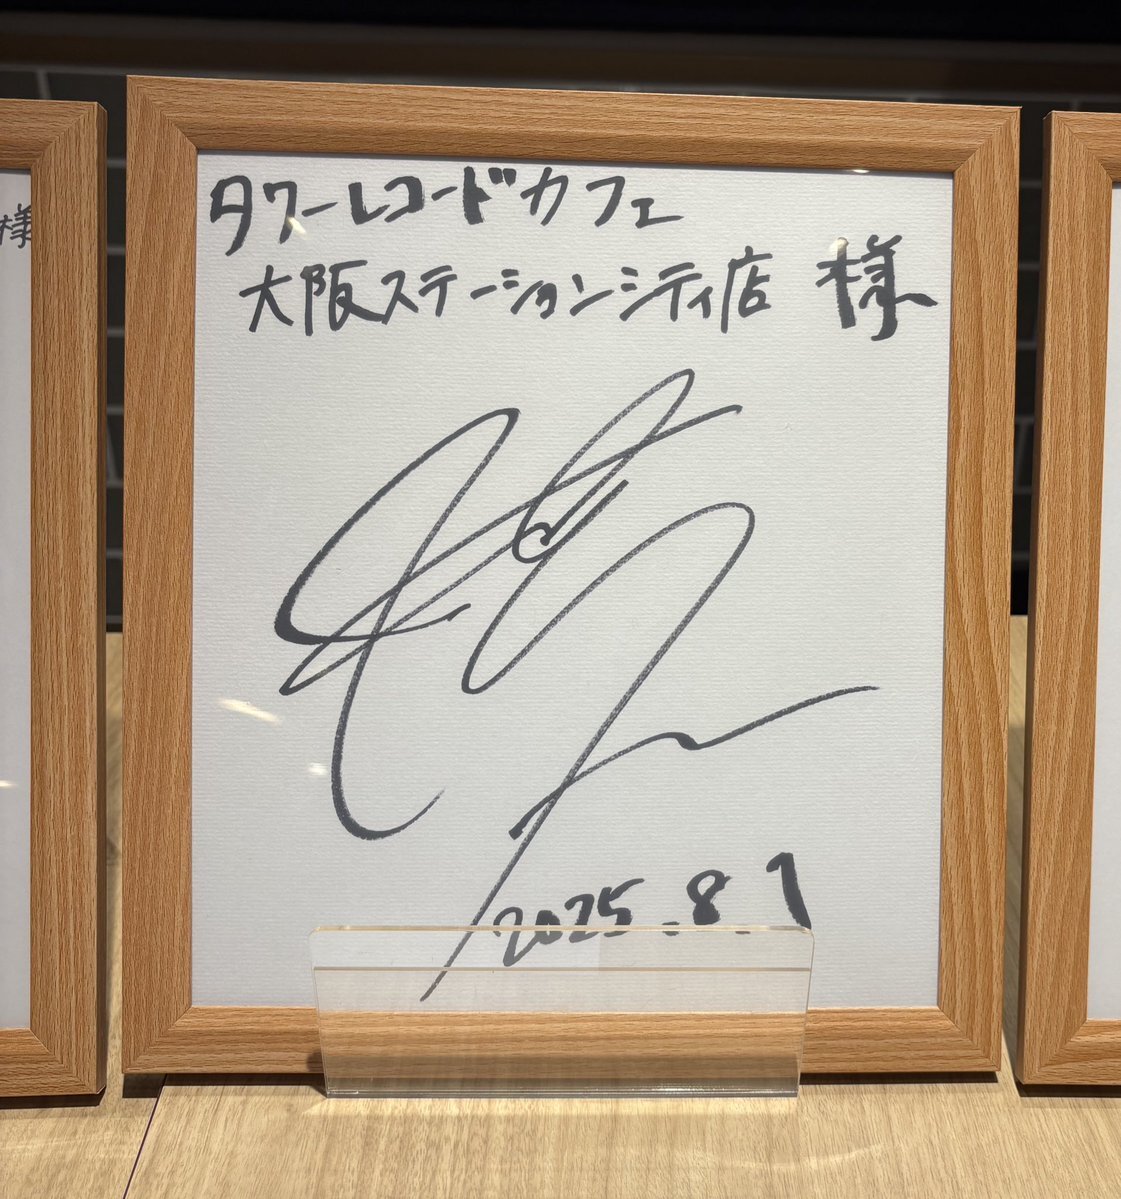 様
タワーレコードカフェ
大阪ステーションシティ店 様
2025.8.1